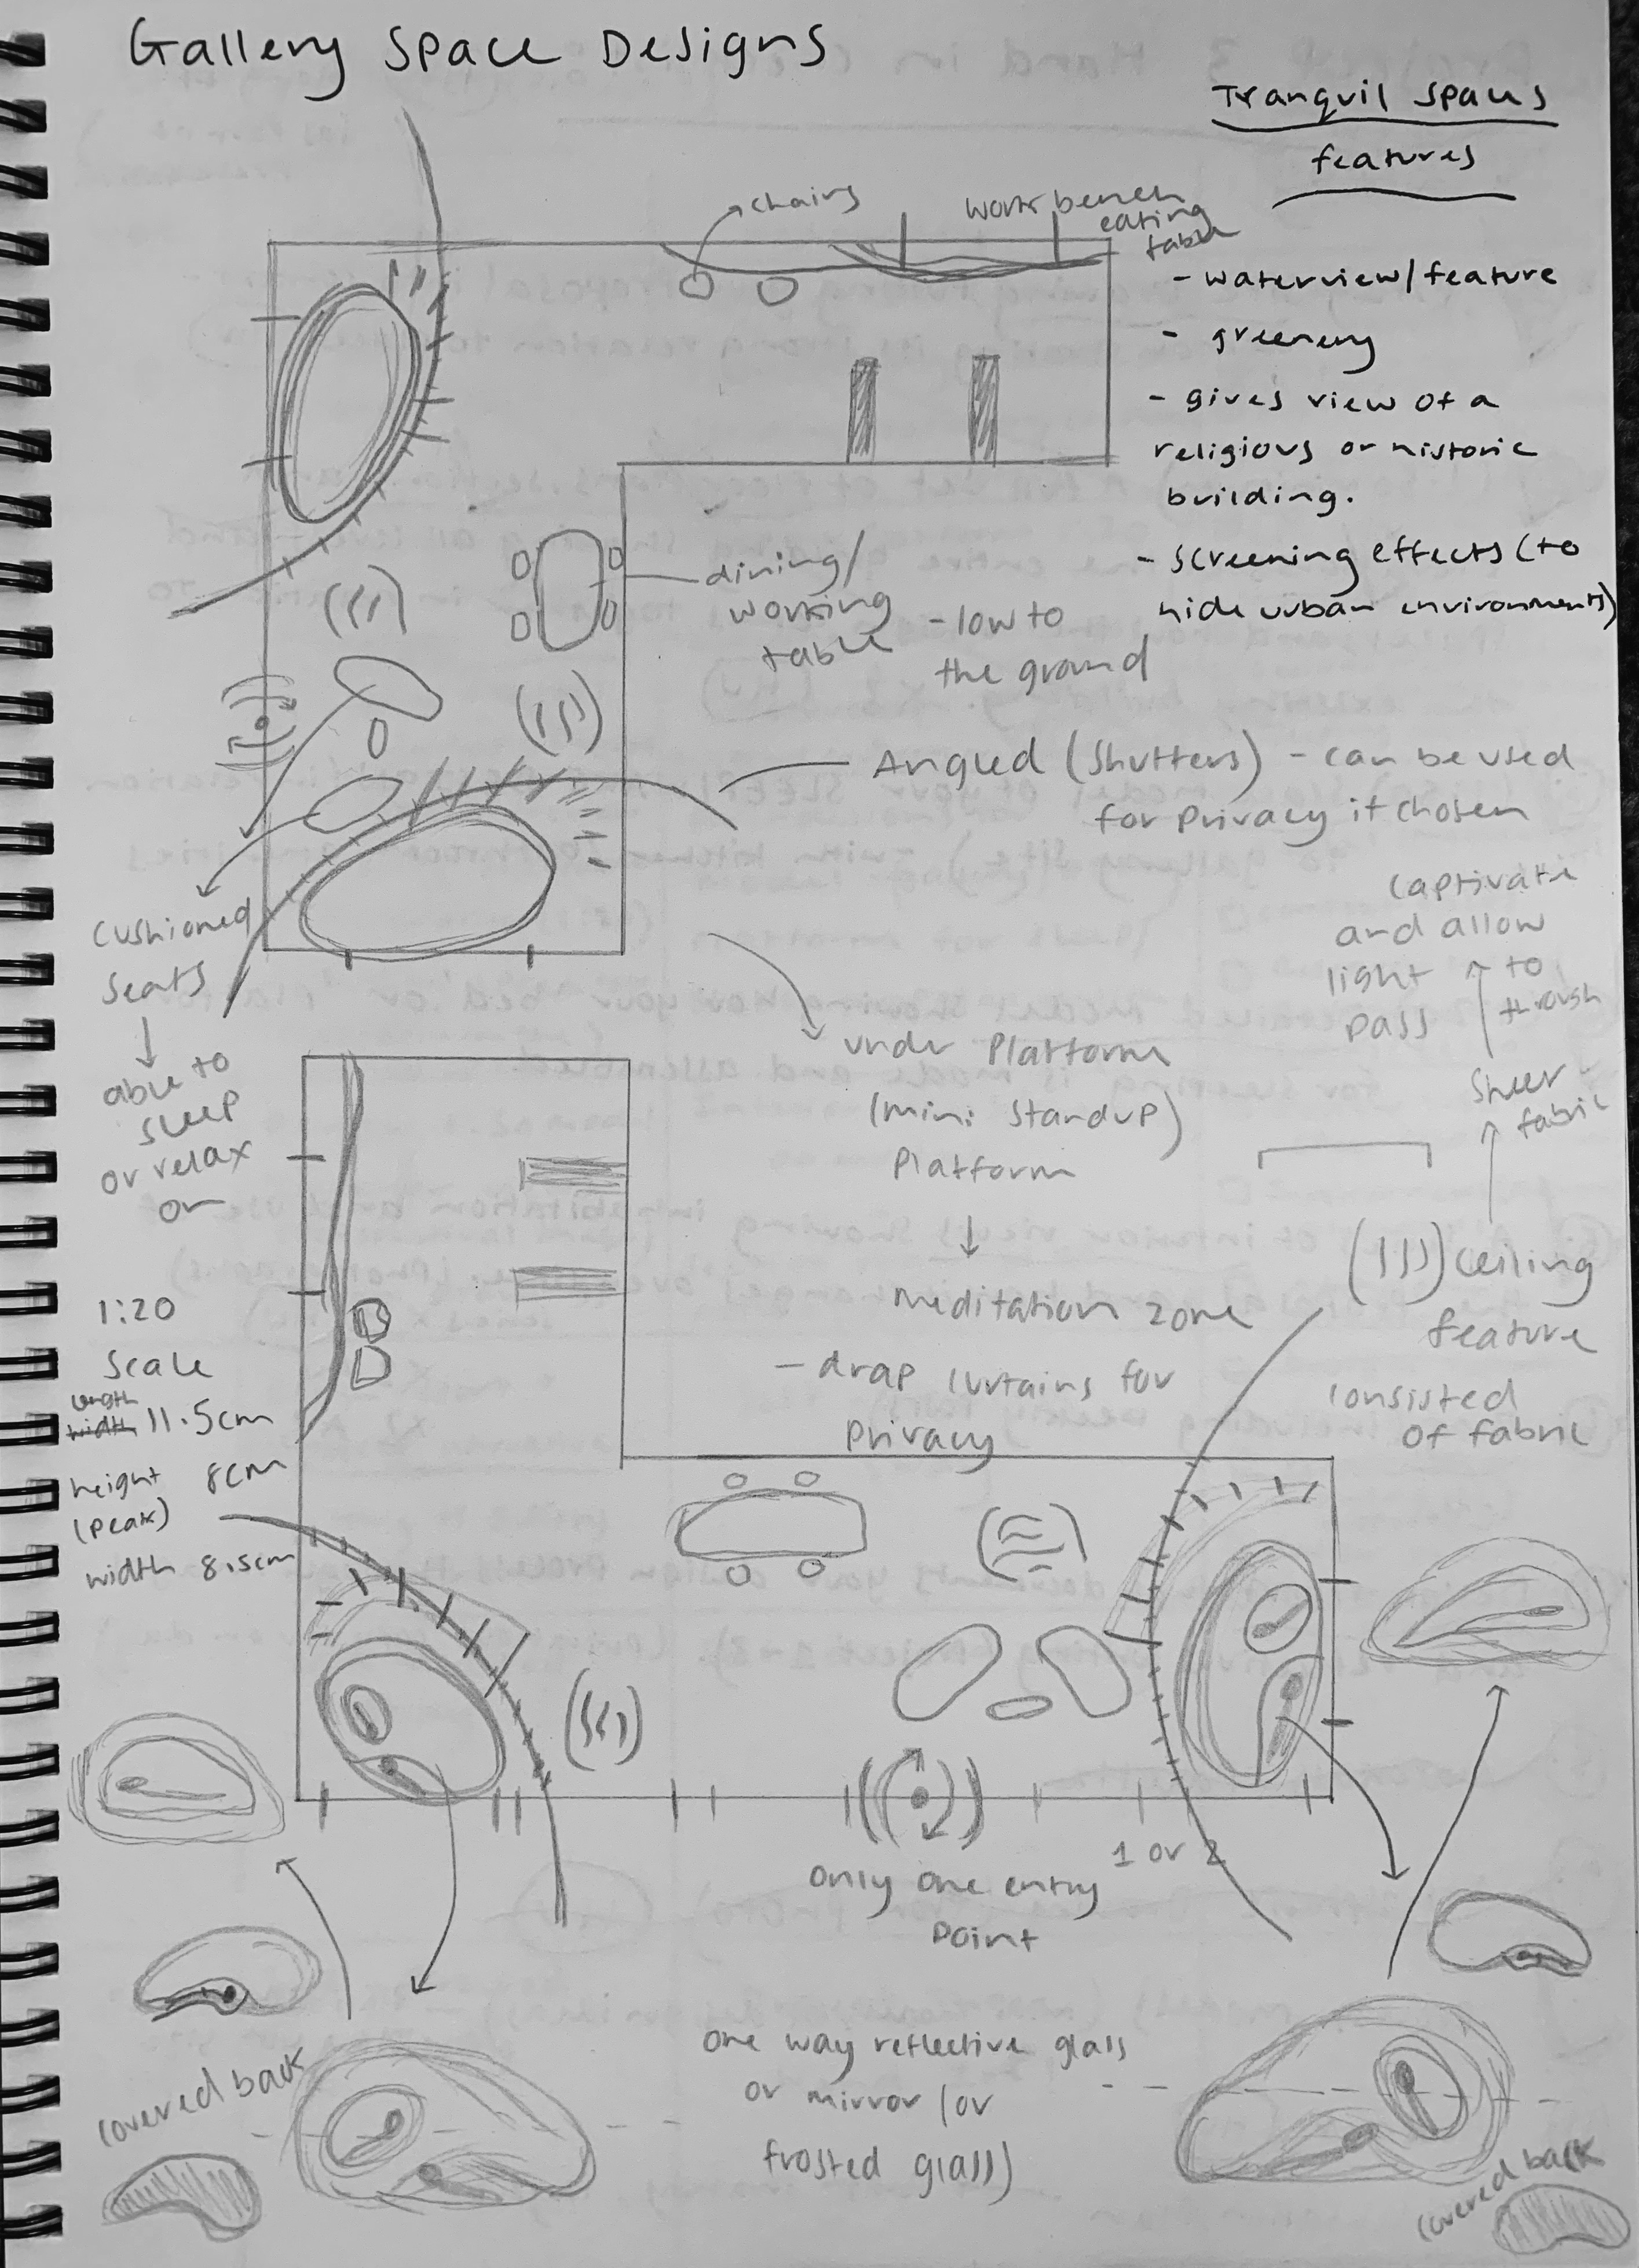 Gallery Space Designs
Tranquil spaces
features
- waterview/feature
- greenery
- gives view of a
religious or historic
building.
- screening effects (to
hide urban environments)
chairs
work bench
eating
table
dining/
working
table
- low to
the ground
Angled (shutters) - can be used
for privacy if chosen
cushioned
seats
able to
sleep
or relax
on
under platform
(mini standup)
platform
meditation zone
- drap curtains for
privacy
captivate
and allow
light to
pass through
sheer
fabric
ceiling
feature
consisted
of fabric
1:20
scale
length
width 11.5cm
height 8cm
(peak)
width 8.5cm
1 or 2
only one entry
point
covered back
one way reflective glass
or mirror (or
frosted glass)
covered back